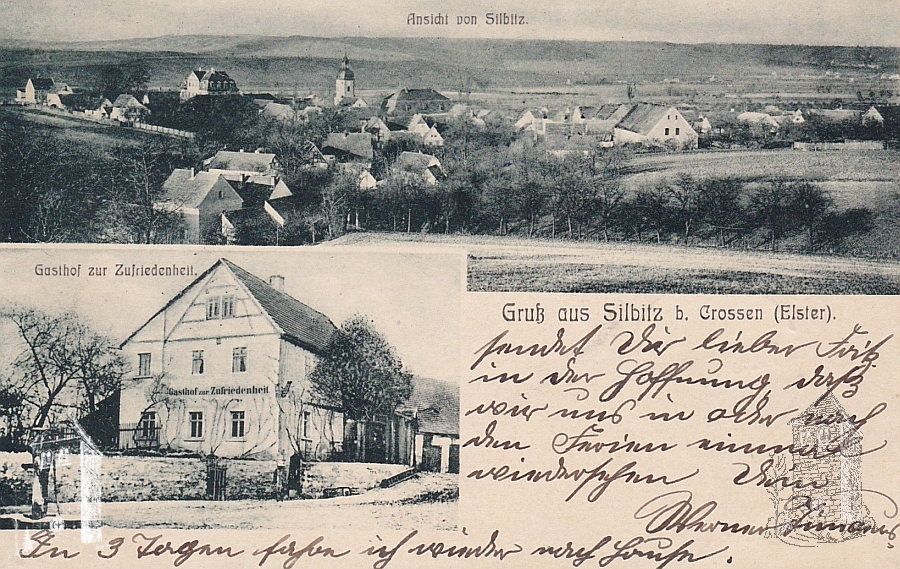 Ansicht von Silbitz.
Gasthof zur Zufriedenheit.
Gasthof zur Zufriedenheit.
Gruß aus Silbitz b. Crossen (Elster).
sendet Dir lieber Fritz
in der Hoffnung, daß
wir uns in oder nach
den Ferien einmal
wiedersehen Dein
Werner
In 3 Tagen fahre ich wieder nach Hause.